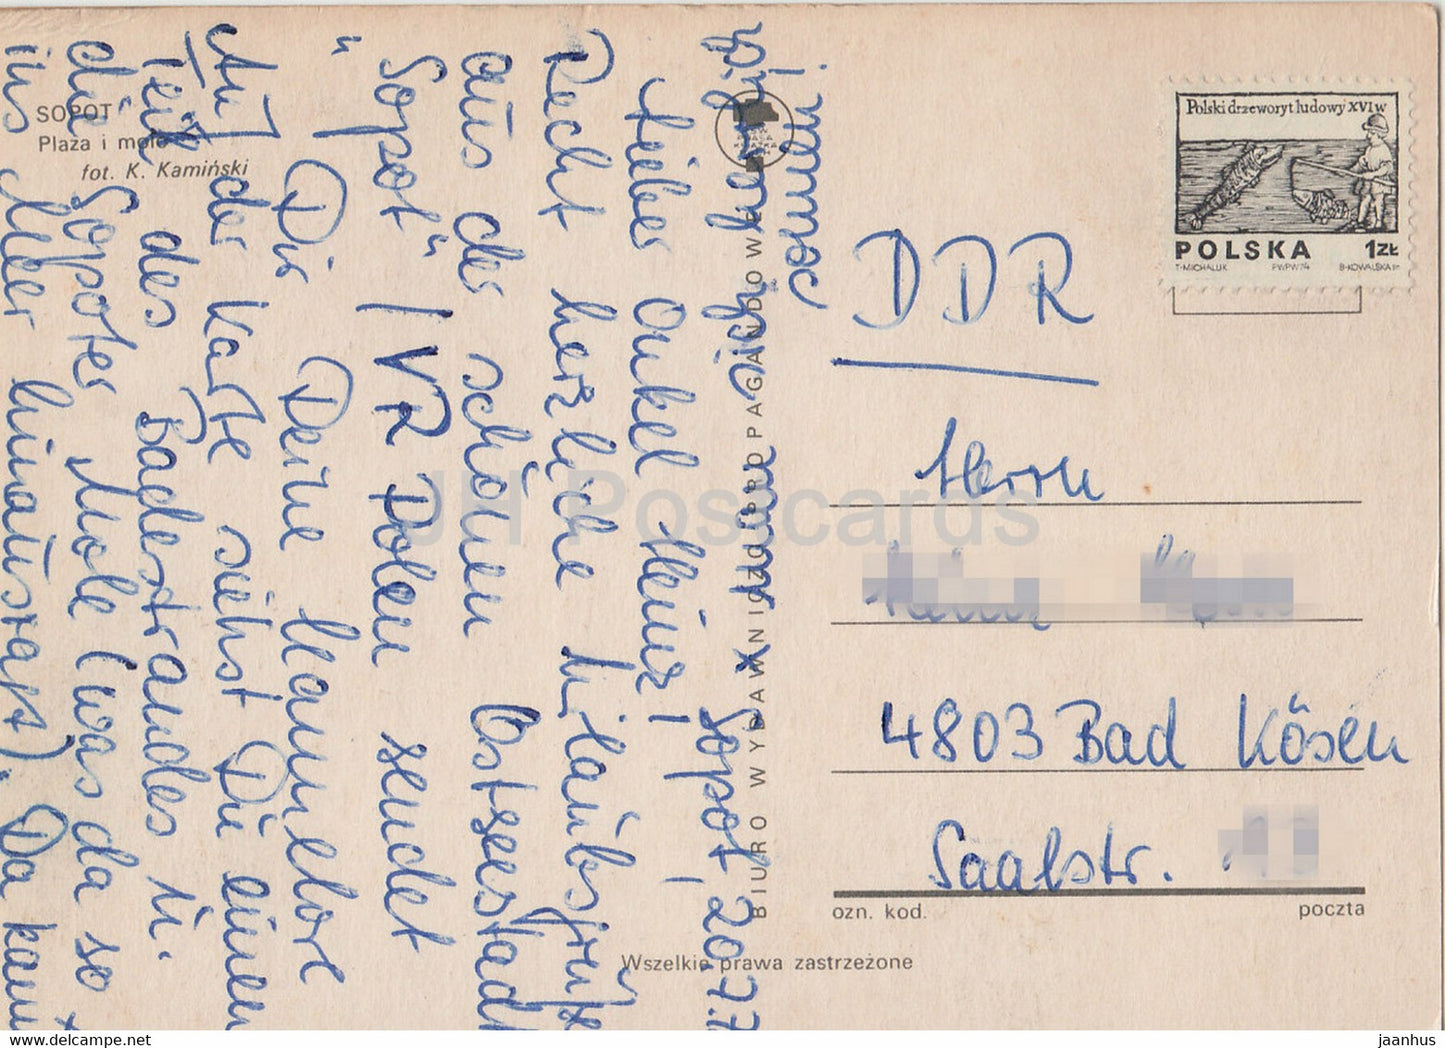 SOPOT
Plaża i molo
fot. K. Kamiński
Sopot, 20.7.7
Lieber Onkel Heinz!
Recht herzliche Urlaubsgrüße
aus der schönen Ostseestadt
"Sopot" / VR Polen sendet
Dir Deine Hannelore
Auf der Karte siehst Du einen
Teil des Badestrandes u.
die Sopoter Mole (was da so
ins Meer hinausragt). Da kann
BIURO WYDAWNICZO PROPAGANDOWE
Polski drzeworyt ludowy XVI w
POLSKA 1ZŁ
T·MICHALUK PWPW 74 B·KOWALSKA
DDR
Herrn
4803 Bad Kösen
Saalstr.
ozn. kod.
poczta
Wszelkie prawa zastrzeżone
JH Postcards
https://www.jhpostcards.net
jaanhus